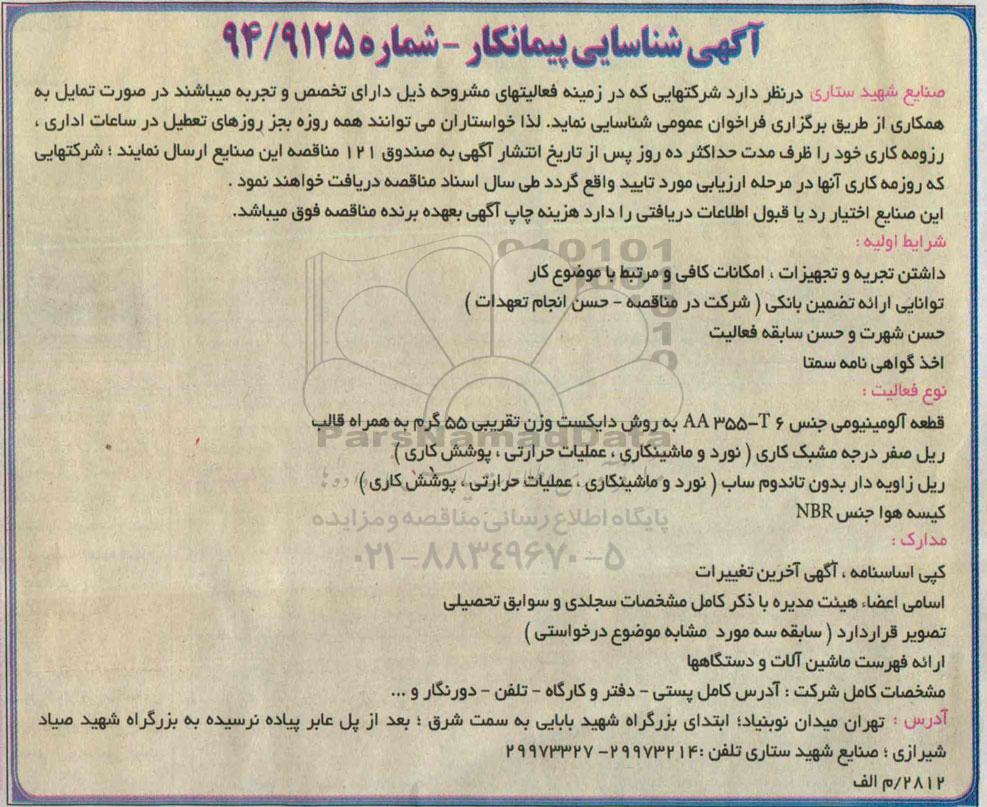 آگهی شناسایی پیمانکار - شماره ۹۴/۹۱۲۵
صنایع شهید ستاری درنظر دارد شرکتهایی که در زمینه فعالیتهای مشروحه ذیل دارای تخصص و تجربه میباشند در صورت تمایل به
همکاری از طریق برگزاری فراخوان عمومی شناسایی نماید. لذا خواستاران می توانند همه روزه بجز روزهای تعطیل در ساعات اداری ،
رزومه کاری خود را ظرف مدت حداکثر ده روز پس از تاریخ انتشار آگهی به صندوق ۱۲۱ مناقصه این صنایع ارسال نمایند ؛ شرکتهایی
که روزمه کاری آنها در مرحله ارزیابی مورد تایید واقع گردد طی سال اسناد مناقصه دریافت خواهند نمود .
این صنایع اختیار رد یا قبول اطلاعات دریافتی را دارد هزینه چاپ آگهی بعهده برنده مناقصه فوق میباشد.
شرایط اولیه :
داشتن تجربه و تجهیزات ، امکانات کافی و مرتبط با موضوع کار
توانایی ارائه تضمین بانکی ( شرکت در مناقصه - حسن انجام تعهدات )
حسن شهرت و حسن سابقه فعالیت
اخذ گواهی نامه سمتا
نوع فعالیت :
قطعه آلومینیومی جنس AA ۳۵۵-T ۶ به روش دایکست وزن تقریبی ۵۵ گرم به همراه قالب
ParsNamadData
ریل صفر درجه مشبک کاری ( نورد و ماشینکاری ، عملیات حرارتی ، پوشش کاری )
ریل زاویه دار بدون تاندوم ساب ( نورد و ماشینکاری ، عملیات حرارتی ، پوشش کاری )
کیسه هوا جنس NBR
پایگاه اطلاع رسانی مناقصه و مزایده
مدارک :
۰۲۱-۸۸۳۴۹۶۷۰-۵
کپی اساسنامه ، آگهی آخرین تغییرات
اسامی اعضاء هیئت مدیره با ذکر کامل مشخصات سجلدی و سوابق تحصیلی
تصویر قراردارد ( سابقه سه مورد مشابه موضوع درخواستی )
ارائه فهرست ماشین آلات و دستگاهها
مشخصات کامل شرکت : آدرس کامل پستی - دفتر و کارگاه - تلفن - دورنگار و ...
آدرس : تهران میدان نوبنیاد؛ ابتدای بزرگراه شهید بابایی به سمت شرق ؛ بعد از پل عابر پیاده نرسیده به بزرگراه شهید صیاد
شیرازی ؛ صنایع شهید ستاری تلفن :۲۹۹۷۳۲۱۴- ۲۹۹۷۳۳۲۷
۲۸۱۲/م الف